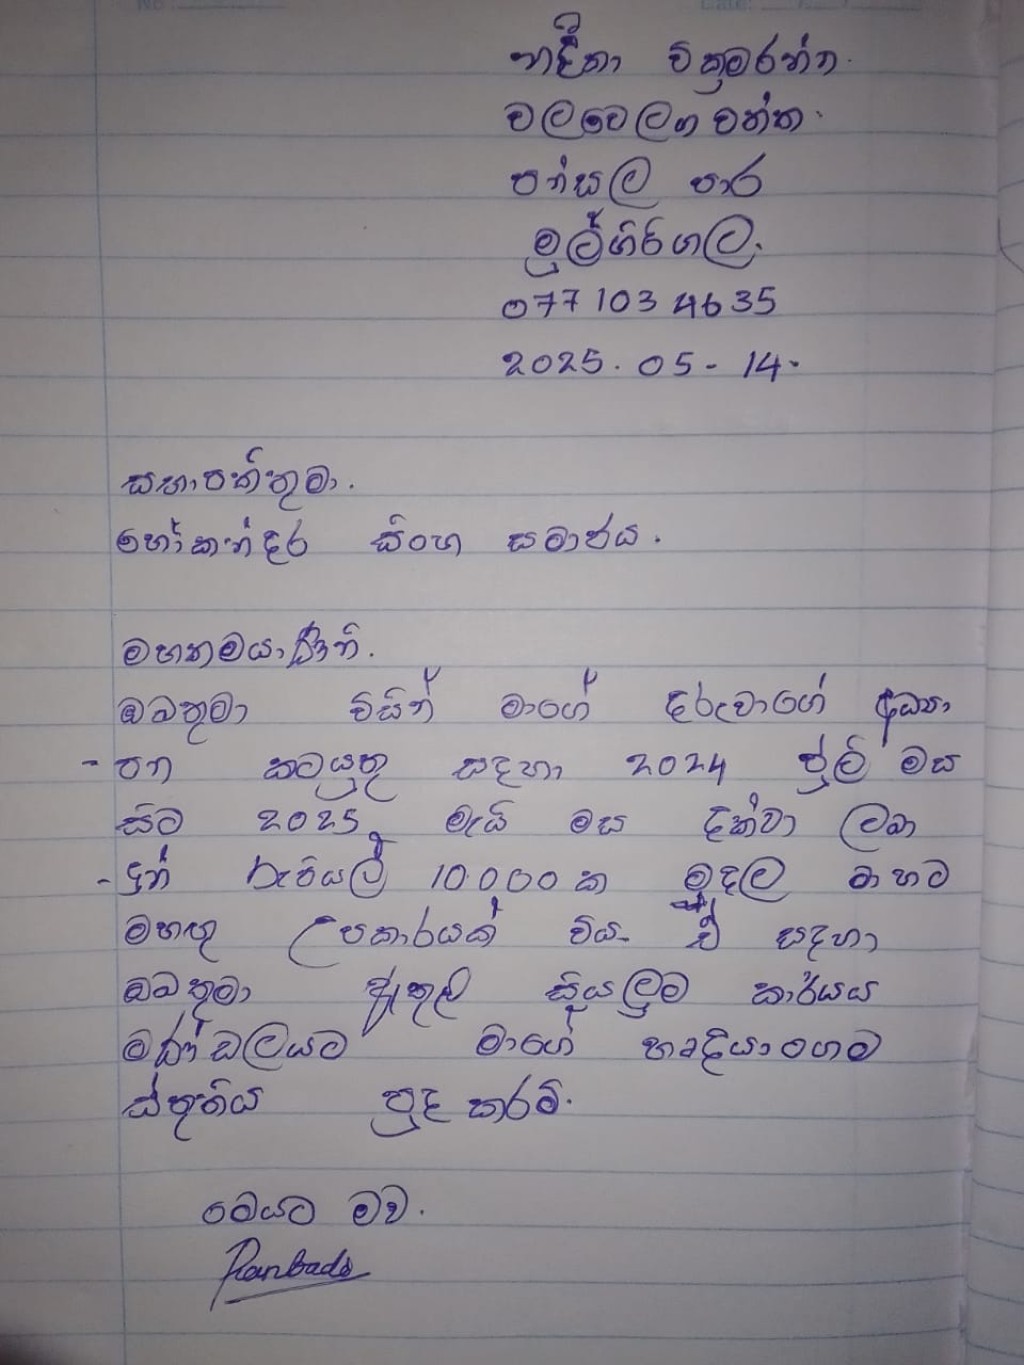 නදීකා වික්‍රමරත්න.
වලවෙලගවත්ත.
පන්සල පාර
මුල්ගිරිගල.
077 103 4635
2025. 05 - 14.
සභාපතිතුමා.
හෝකන්දර සිංහ සමාජය.
මහතමයාණනි.
ඔබතුමා විසින් මාගේ දරුවාගේ අධ්‍යා
- පන කටයුතු සදහා 2024 ජුලි මස
සිට 2025 මැයි මස දක්වා ලබා
- දුන් රුපියල් 10000 ක මුදල මාහට
මහඟු උපකාරයක් විය. ඒ සදහා
ඔබතුමා ඇතුළු සියලුම කාර්යය
මණ්ඩලයට මාගේ හෘදියාංගම
ස්තූතිය පුද කරමි.
මෙයට මව.